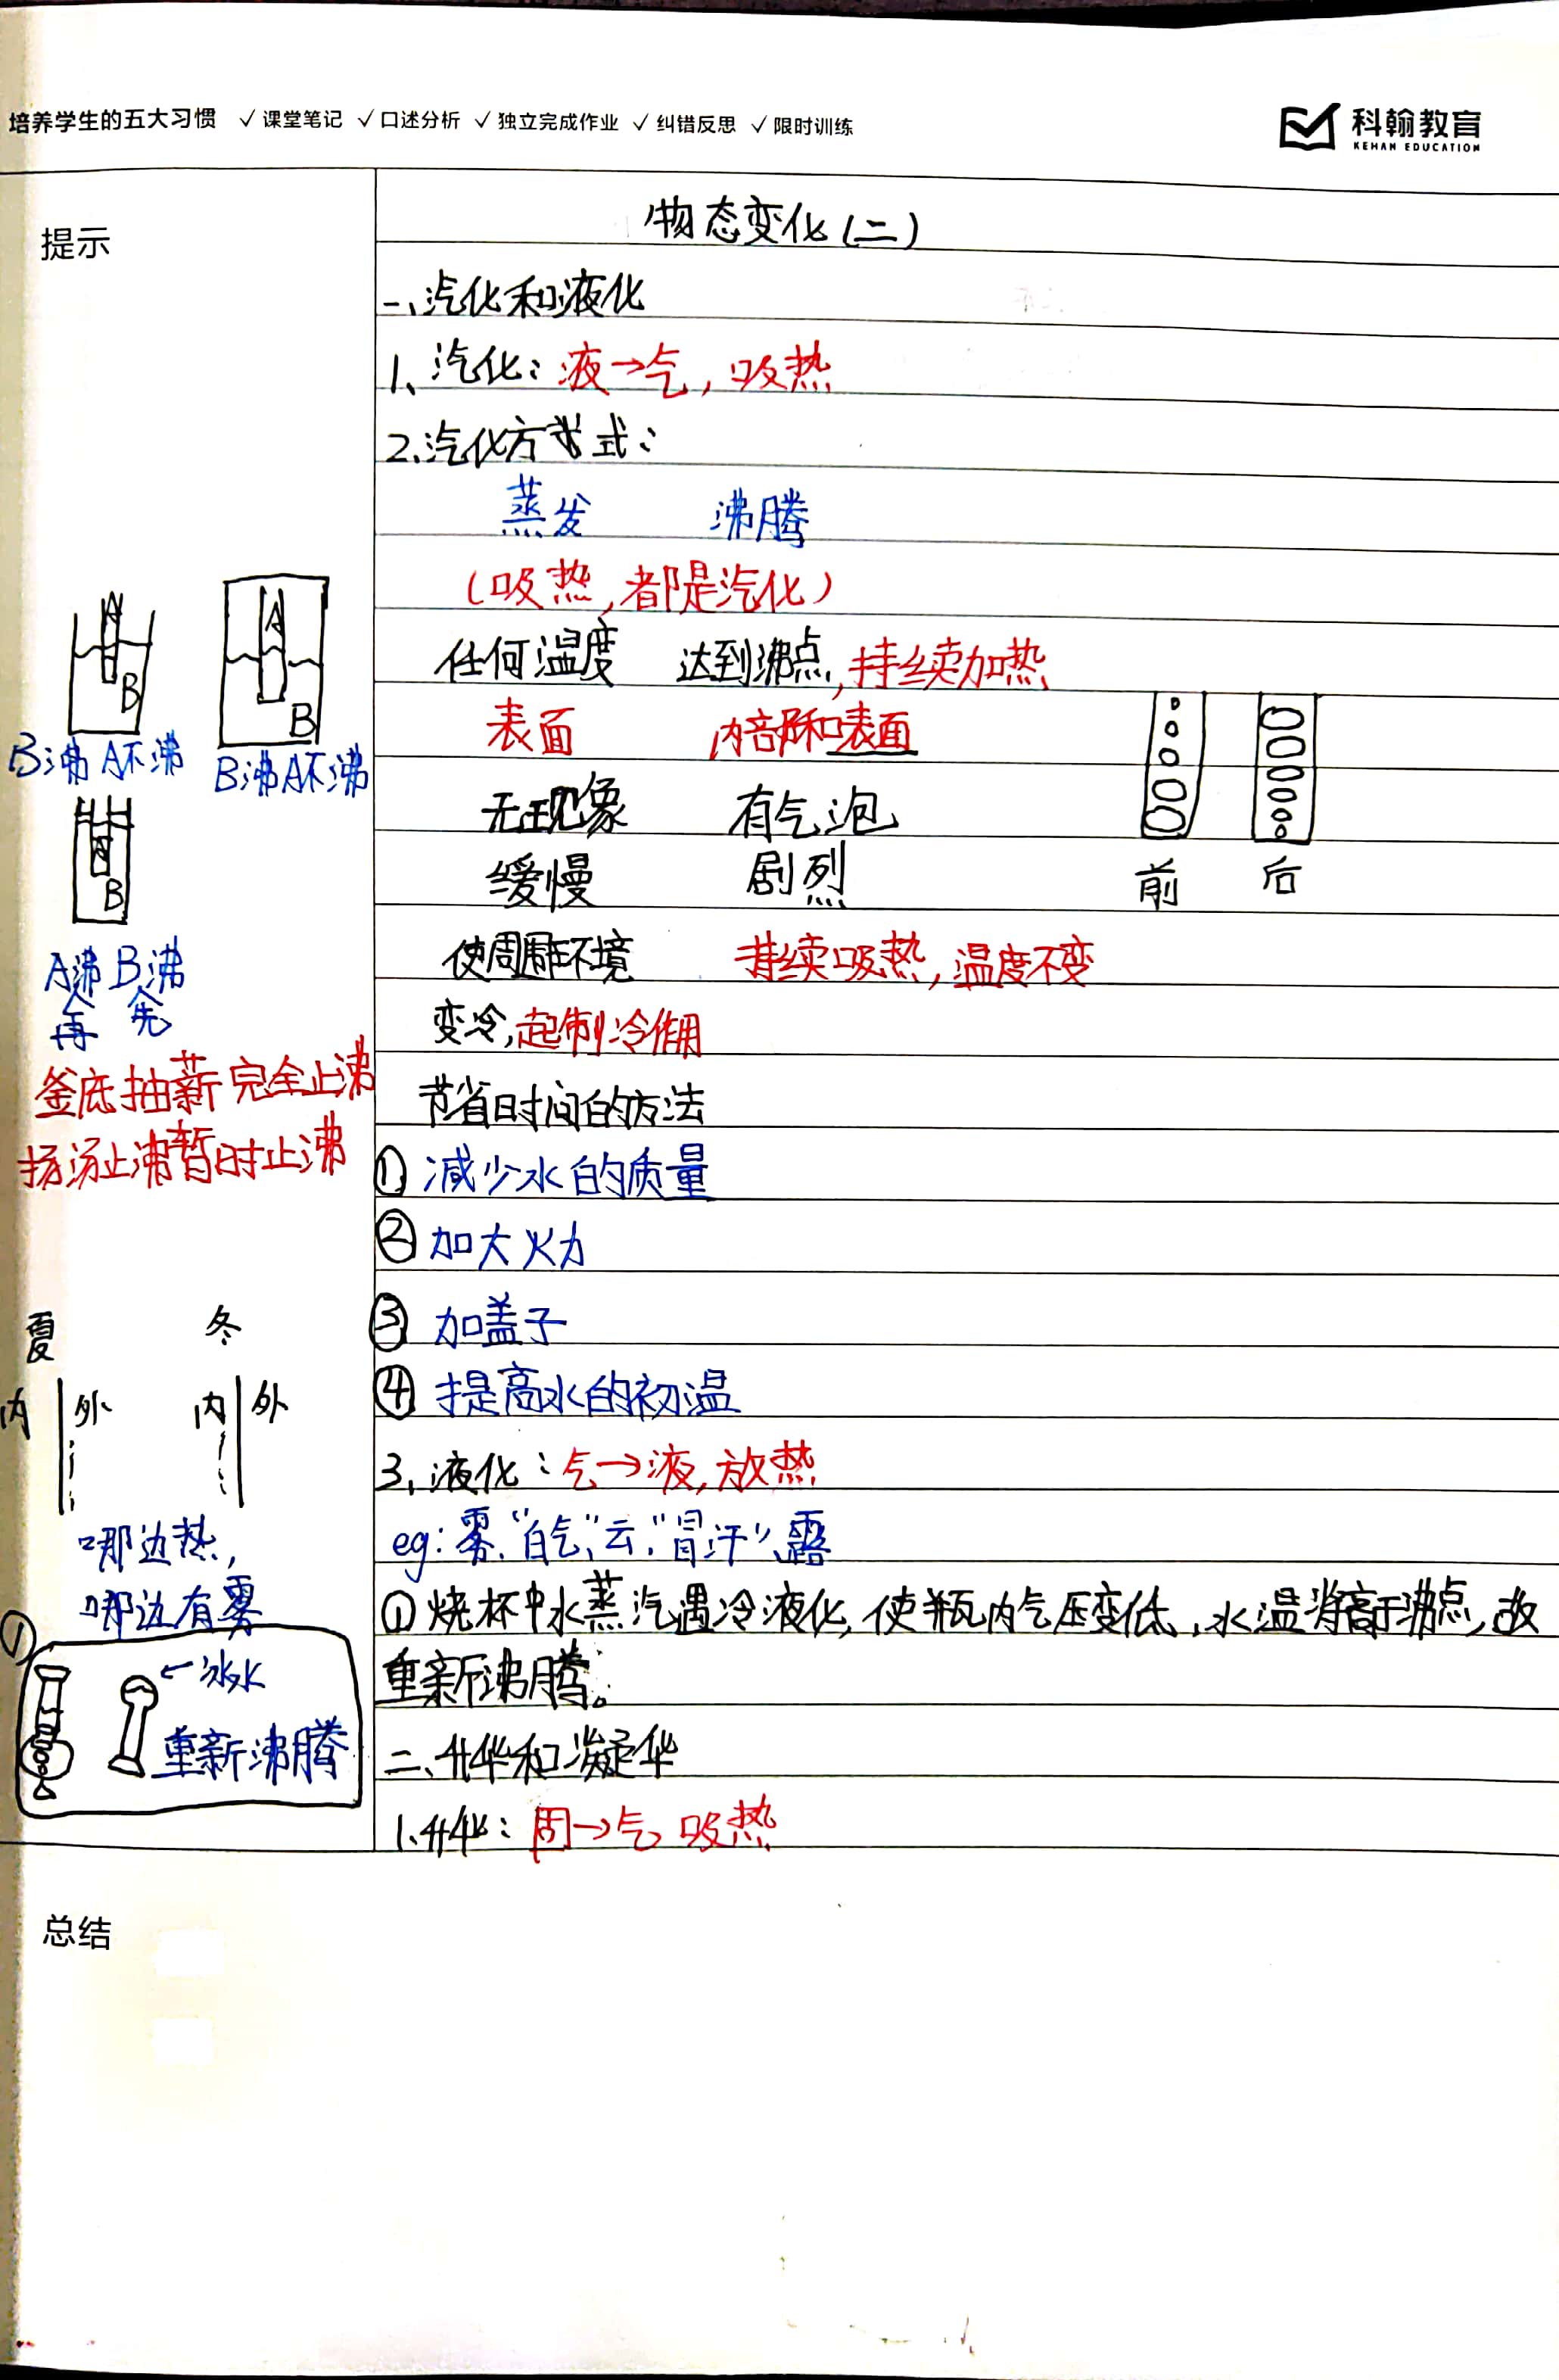 培养学生的五大习惯 ✓课堂笔记 ✓口述分析 ✓独立完成作业 ✓纠错反思 ✓限时训练
科翰教育
KEHAN EDUCATION
提示
物态变化(二)
一、汽化和液化
1、汽化:液→气,吸热
2、汽化方式:
蒸发 沸腾
(吸热,都是汽化)
任何温度 达到沸点,持续加热
表面 内部和表面
无现象 有气泡
缓慢 剧烈
前 后
使周围环境 持续吸热,温度不变
变冷,起制冷作用
节省时间的方法
①减少水的质量
②加大火力
③加盖子
④提高水的初温
3、液化:气→液,放热
eg:雾、“白气”、云、“冒汗”、露
①烧杯中水蒸汽遇冷液化,使瓶内气压变低,水温高于沸点,故
重新沸腾。
二、升华和凝华
1、升华:固→气 吸热
A A
B B
B沸A不沸 B沸A不沸
A
B
A沸 B沸
再 先
釜底抽薪完全止沸
扬汤止沸暂时止沸
夏 冬
内 外 内 外
哪边热,
哪边有雾
①
←冰水
重新沸腾
总结